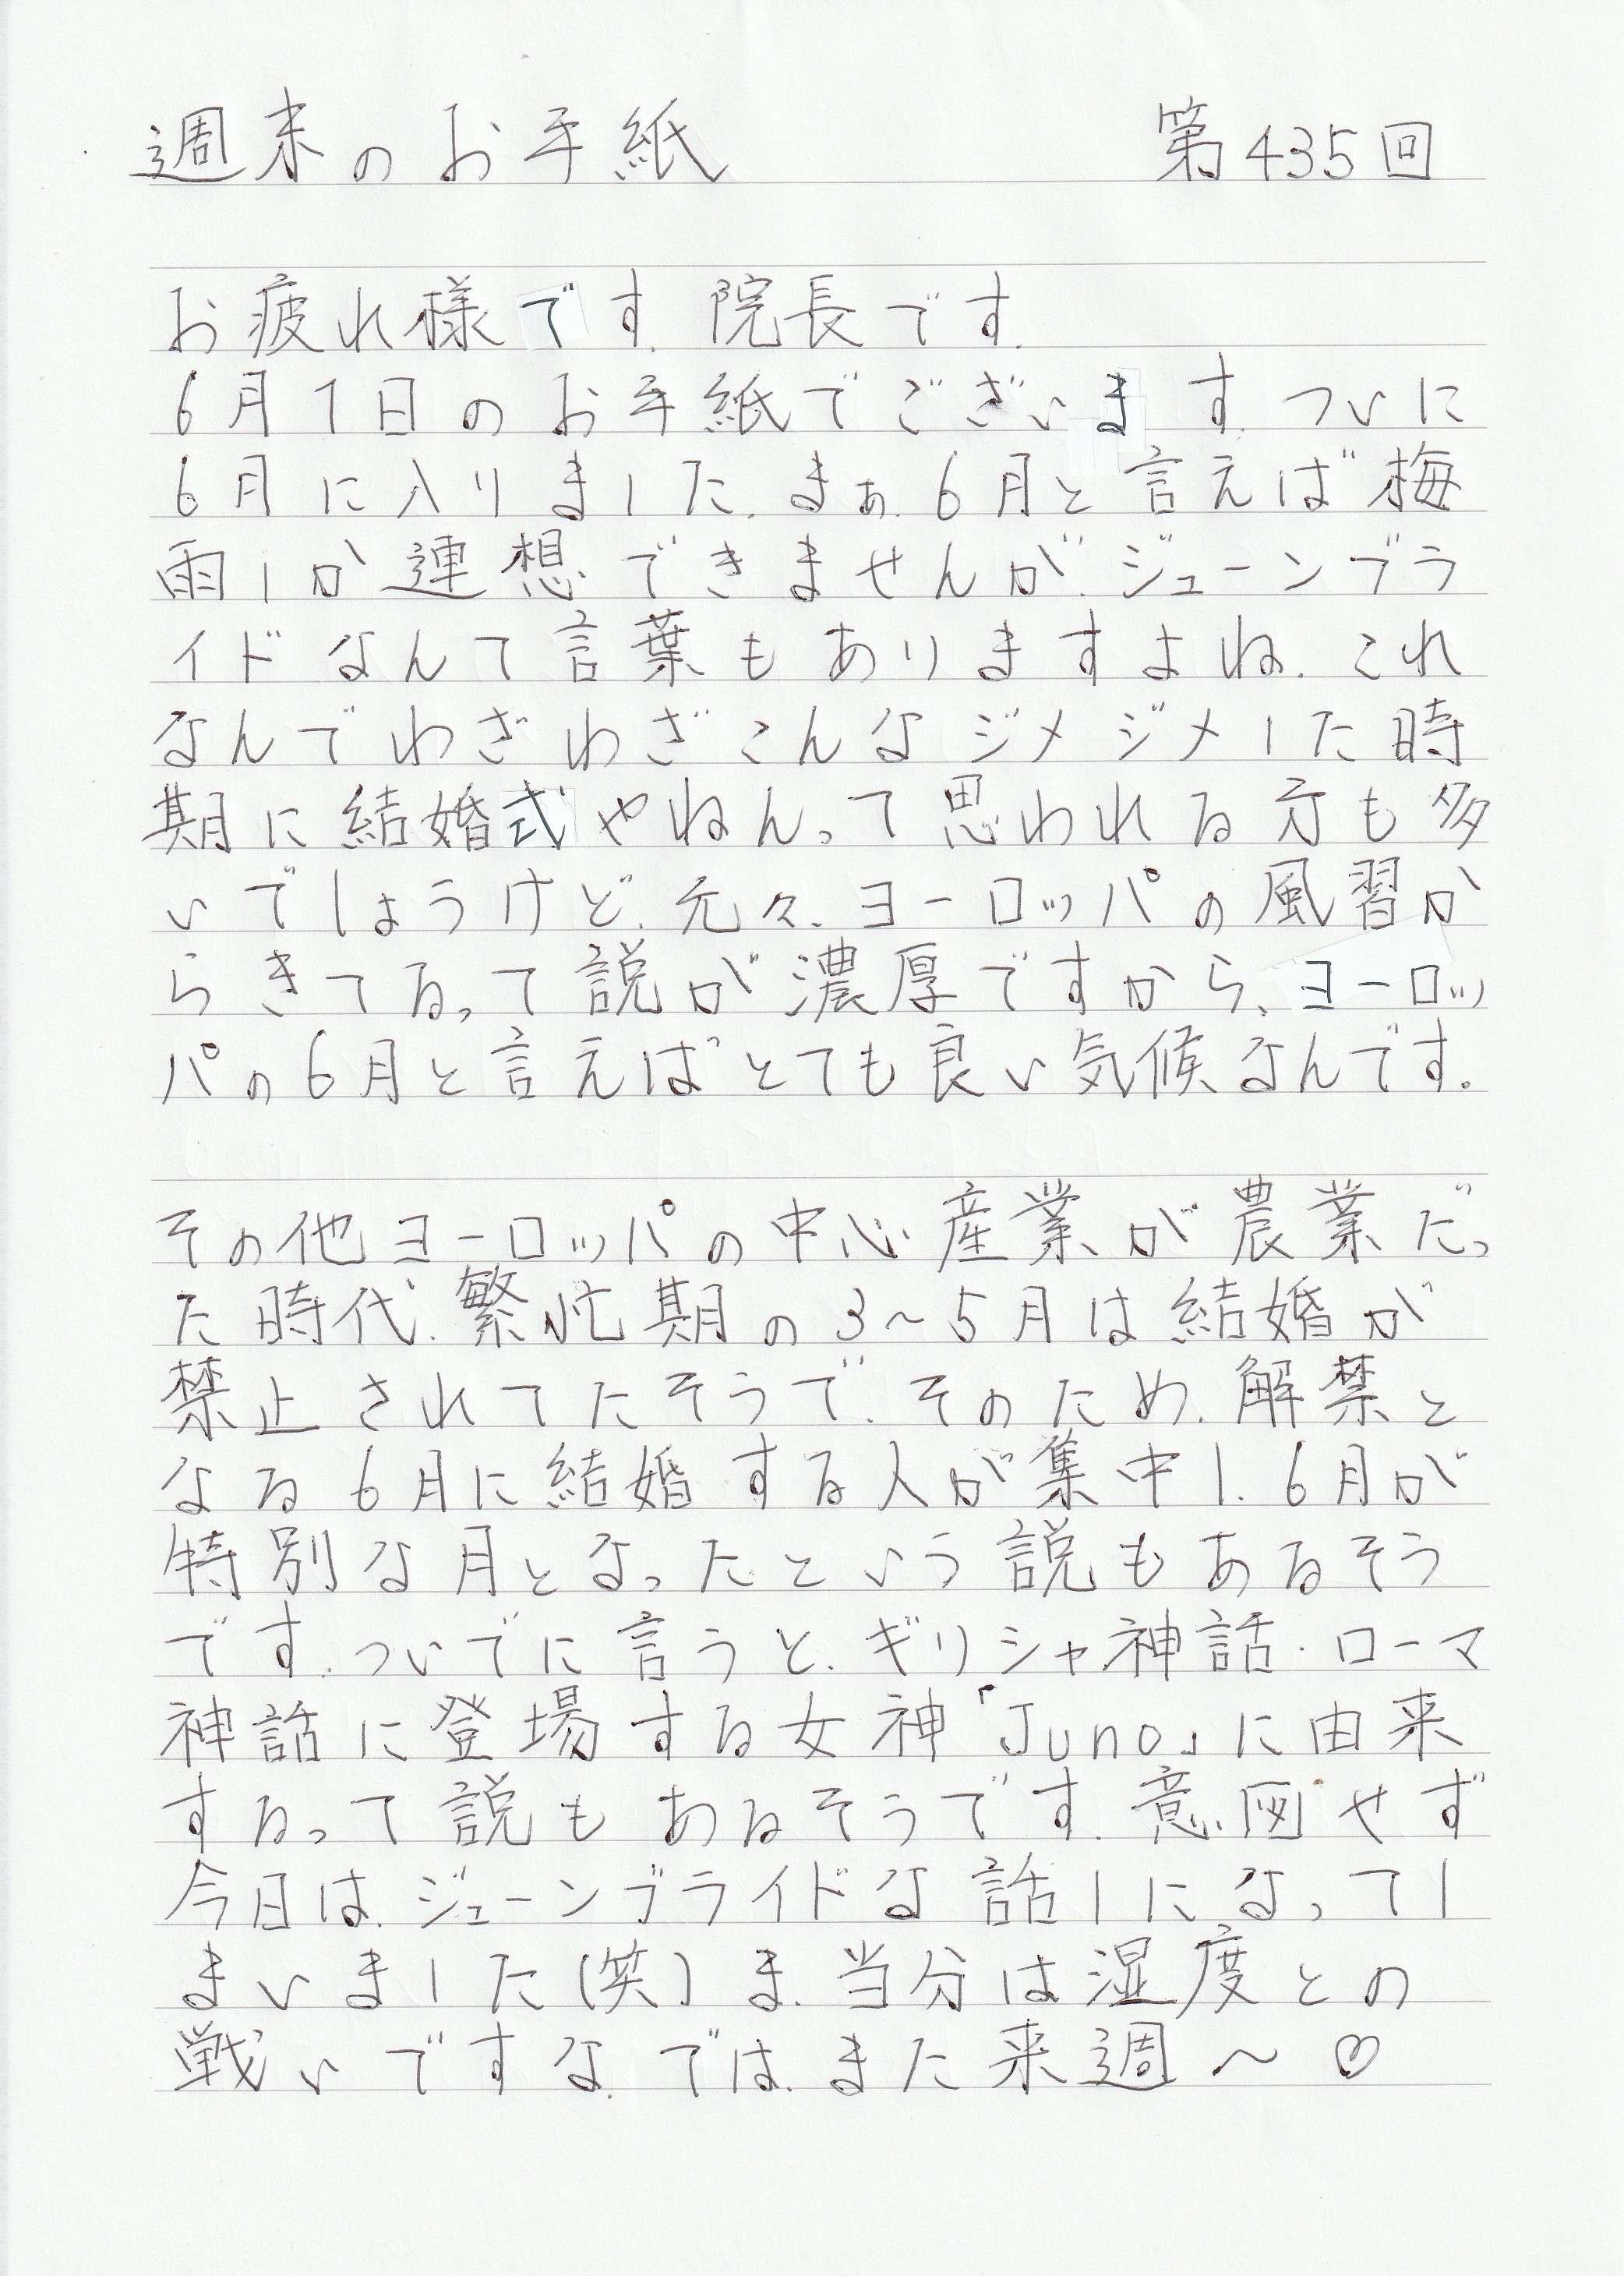 週末のお手紙 第435回
お疲れ様です.院長です.
6月1日のお手紙でございます.ついに
6月に入りました.まぁ.6月と言えば梅
雨しか連想できませんが.ジューンブラ
イドなんて言葉もありますよね.これ
なんでわざわざこんなジメジメした時
期に結婚式やねんって思われる方も多
いでしょうけど.元々、ヨーロッパの風習か
らきてるって説が濃厚ですから、ヨーロッ
パの6月と言えばとても良い気候なんです.
その他ヨーロッパの中心産業が農業だっ
た時代.繁忙期の3~5月は結婚が
禁止されてたそうで.そのため.解禁と
なる6月に結婚する人が集中し.6月が
特別な月となったという説もあるそう
です.ついでに言うと.ギリシャ神話・ローマ
神話に登場する女神「Juno」に由来
するって説もあるそうです.意図せず
今日は.ジューンブライドな話しになってし
まいました(笑)ま.当分は湿度との
戦いですな.では.また来週〜♡